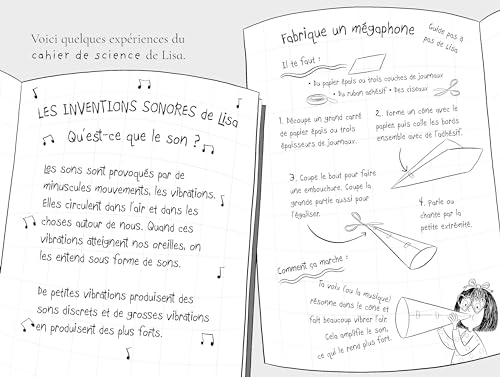 Voici quelques expériences du
cahier de science de Lisa.
LES INVENTIONS SONORES de Lisa
Qu'est-ce que le son ?
Les sons sont provoqués par de
minuscules mouvements, les vibrations.
Elles circulent dans l'air et dans les
choses autour de nous. Quand ces
vibrations atteignent nos oreilles, on
les entend sous forme de sons.
De petites vibrations produisent des
sons discrets et de grosses vibrations
en produisent des plus forts.
Fabrique un mégaphone
Guide pas à
pas de Lisa
Il te faut :
• Du papier épais ou trois couches de journaux
• Du ruban adhésif • Des ciseaux
1. Découpe un grand carré
de papier épais ou trois
épaisseurs de journaux.
2. Forme un cône avec le
papier, puis colle les bords
ensemble avec de l'adhésif.
3. Coupe le bout pour faire
une embouchure. Coupe la
grande partie aussi pour
l'égaliser.
4. Parle ou
chante par la
petite extrémité.
Comment ça marche :
Ta voix (ou la musique)
résonne dans le cône et
fait beaucoup vibrer l'air.
Cela amplifie le son,
ce qui le rend plus fort.